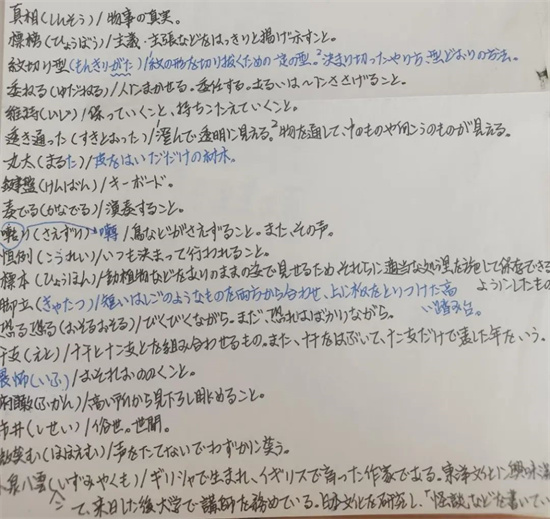 真相(しんそう)/物事の真実。
標榜(ひょうぼう)/主義・主張などをはっきりと掲げ示すこと。
紋切り型(もんきりがた)/紋の形を切り抜くための一定の型。²決まり切ったやり方、型どおりの方法。
委ねる(ゆだねる)/人にまかせる。委任する。あるいは〜にささげること。
維持(いじ)/保っていくこと、持ちこたえていくこと。
透き通った(すきとおった)/澄んで透明に見える。²物を通して、中のものや向こうのものが見える。
丸太(まるた)/皮をはいだだけの材木。
鍵盤(けんばん)/キーボード。
奏でる(かなでる)/演奏すること。
囀り(さえずり)・囀/鳥などがさえずること。また、その声。
慣例(こうれい)/いつも決まって行われること。
標本(ひょうほん)/動植物などをありのままの姿で見せるため、それらに適当な処理を施して保存できる
ようにしたもの
脚立(きゃたつ)/短いはしごのようなものを両方から合わせ、上に板をとりつけた高
い踏み台。
恐る恐る(おそるおそる)/びくびくながら。まだ、恐ればかりながら。
干支(えと)/十干と十二支とを組み合わせるもの。また、十干をはぶいて、十二支だけで表した年をいう。
畏怖(いふ)/おそれおののくこと。
俯瞰(ふかん)/高い所から見下ろし眺めること。
市井(しせい)/俗世。世間。
微笑む(ほほえむ)/声をたてないでわずかに笑う。
小泉八雲(いずみやくも)/ギリシャで生まれ、イギリスで育った作家である。東洋文化に興味
て、来日した後大学で講師を務めている。日本文化を研究し、「怪談」などを書いてい